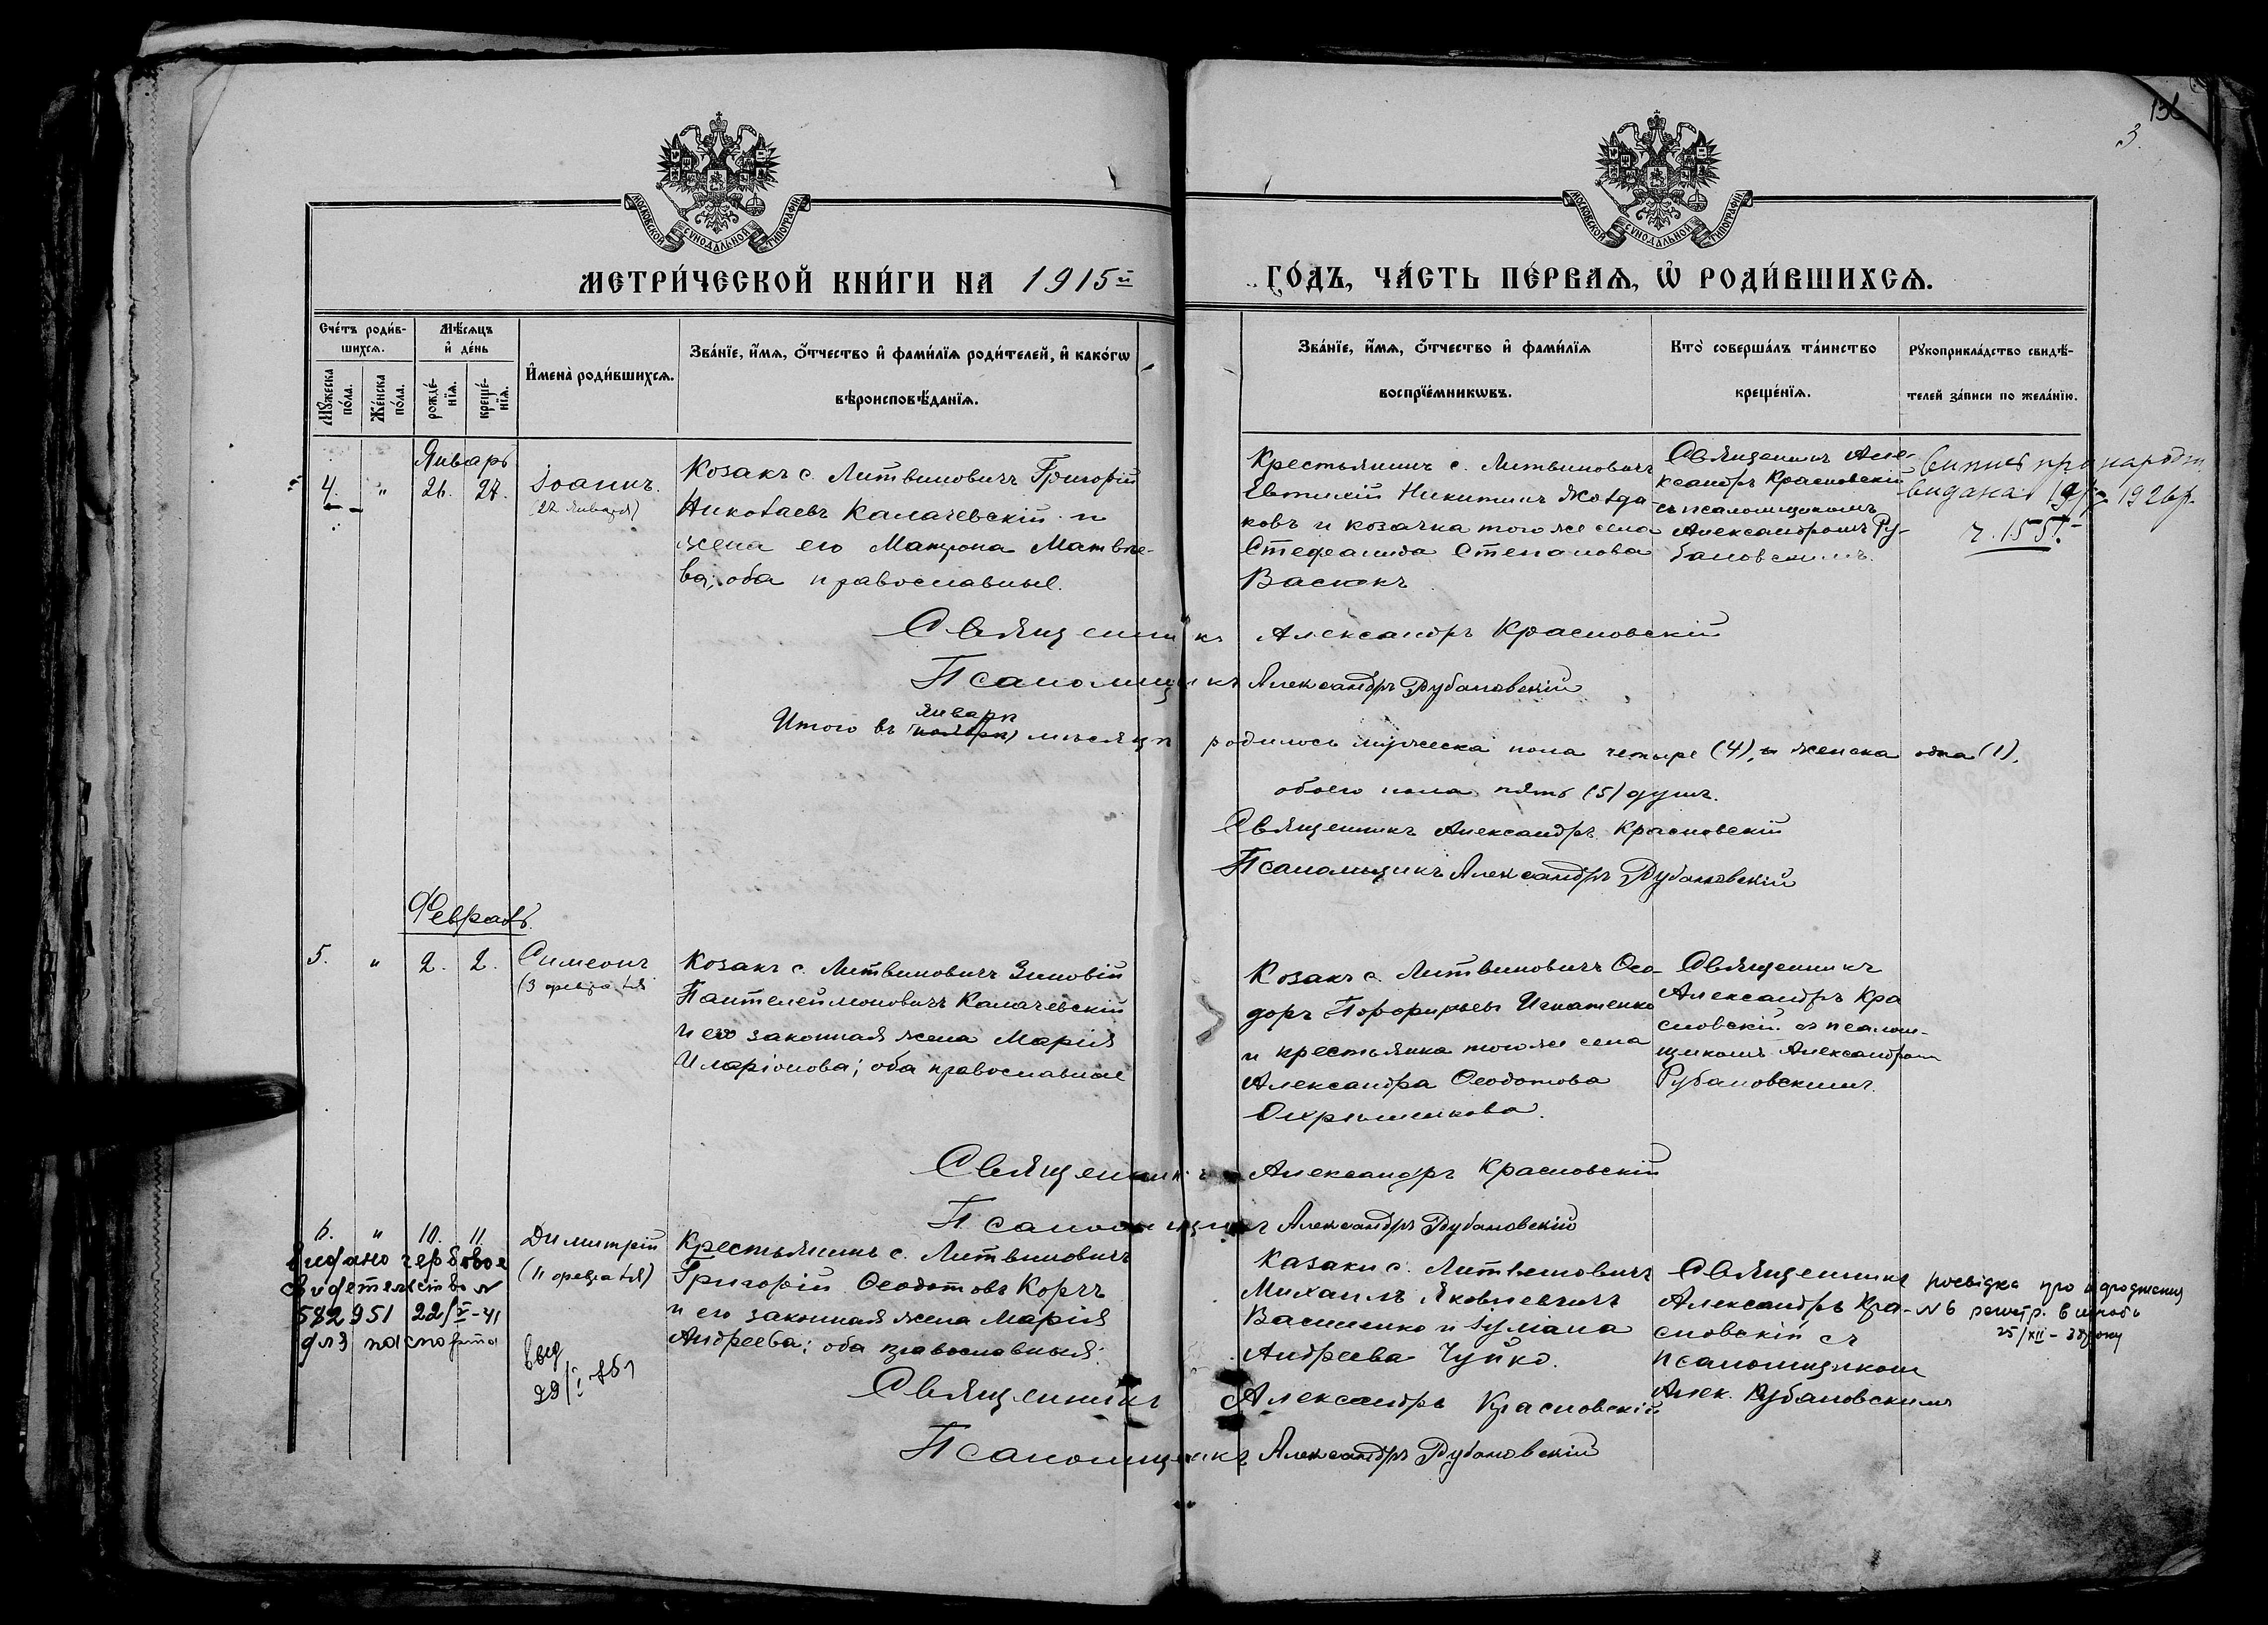 136
3.
МОСКОВСКОЙ СѴНОДАЛЬНОЙ ТИПОГРАФІИ
МОСКОВСКОЙ СѴНОДАЛЬНОЙ ТИПОГРАФІИ
МЕТРИ́ЧЕСКОЙ КНИ́ГИ НА 1915й
ГО́ДЪ, ЧА́СТЬ ПЕ́РВАѦ, Ѡ҆ РОДИ́ВШИХСѦ.
Сче́тъ роди́в-
шихсѧ.
Мꙋ́жеска по́ла.
Же́нска по́ла.
Мѣ́сѧцъ
и҆ де́нь
рожде́-
нїѧ.
креще́-
нїѧ.
И҆мена̀ роди́вшихсѧ.
Зва́нїе, и҆́мѧ, ѻ҆́тчество и҆ фами́лїѧ роди́телей, и҆ како́гѡ
вѣроисповѣ́данїѧ.
Зва́нїе, и҆́мѧ, ѻ҆́тчество и҆ фами́лїѧ
воспрїе́мникѡвъ.
Кто̀ соверша́лъ та́инство
креще́нїѧ.
Рꙋкоприкла́дство свидѣ́-
телей за́писи по жела́нїю.
Январь
4. " 26. 27.
Іоаннъ.
(27 января)
Козакъ с. Литвиновичъ Григорій
Николаевъ Калачевскій и
жена его Матрона Матвѣе-
ва; оба православные.
Крестьянинъ с. Литвиновичъ
Евтихій Никитинъ
ковъ и козачка того же села
Стефанида Степанова
Васюкъ
Священникъ Але-
ксандръ Красновскій
съ псаломщикомъ
Александромъ Ру-
бановскимъ.
Випис про народж.
видана 1926 р.
ч. 155.
Священникъ Александръ Красновскій
Псаломщикъ Александръ Рубановскій
Итого въ январѣ мѣсяцѣ родилось мужеска пола четыре (4), и женска одна (1),
обоего пола пять (5) душъ.
Священникъ Александръ Красновскій
Псаломщикъ Александръ Рубановскій
Февраль.
5. " 2. 2.
Симеонъ
(3 февраля
Козакъ с. Литвиновичъ Зиновій
Пантелеймоновичъ Калачевскій
и его законная жена Марія
Иларіонова; оба православные
Козакъ с. Литвиновичъ Ѳео-
доръ Порфирьевъ Игнатенко
и крестьянка того же села
Александра Ѳеодотова
Священникъ
Александръ Кра
сновскій съ псалом-
щикомъ Александромъ
Рубановскимъ.
Священникъ Александръ Красновскій
Псаломщикъ Александръ Рубановскій
6. " 10. 11.
Димитрій
(11 февраля)
Крестьянинъ с. Литвиновичъ
Григорій Ѳеодотовъ Коржъ
и его законная жена Марія
Андреева; оба православныя.
Казаки с. Литвиновичъ
Михаилъ Яковлевичъ
Василенко и Іуліана
Андреева Чуйко.
Священникъ
Александръ Кра-
сновскій съ
псаломщикомъ
Алек. Рубановскимъ
посвідка про народження
№ 6 реєстр.
25/XII-38 року
Видано гербовое
свидетельство №
582951 22/V-41
для паспорта
выд
29/I
Священникъ Александръ Красновскій
Псаломщикъ Александръ Рубановскій